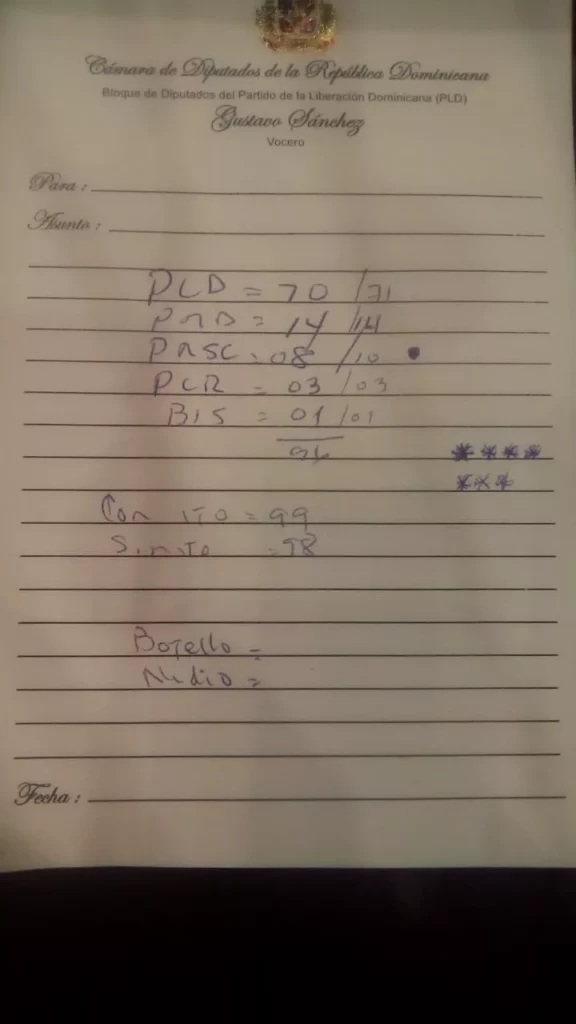 Cámara de Diputados de la República Dominicana
Bloque de Diputados del Partido de la Liberación Dominicana (PLD)
Gustavo Sánchez
Vocero
Para :
Asunto :
PLD = 70 /71
PMD = 14 /14
PRSC = 08 /10
PCR = 03 /03
BIS = 01 /01
96
**** 
***
Con ITO = 99
Sin ITO = 98
Botello =
Nidio =
Fecha :